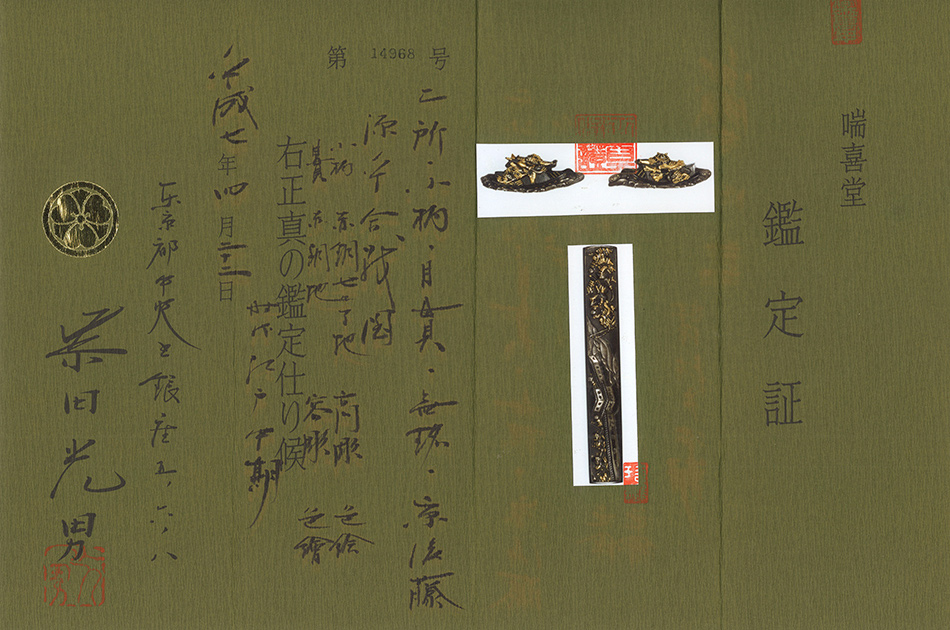 喘喜堂
鑑定証
第 14968 号
二所・小柄・目貫・無銘・京後藤
源平合戦図
小柄 赤銅七子地 高彫 色絵
目貫 赤銅地 容彫 色繪
右正真の鑑定仕り候
時代江戸中期
平成七年四月二十二日
東京都中央区銀座五、六、八
柴田光男